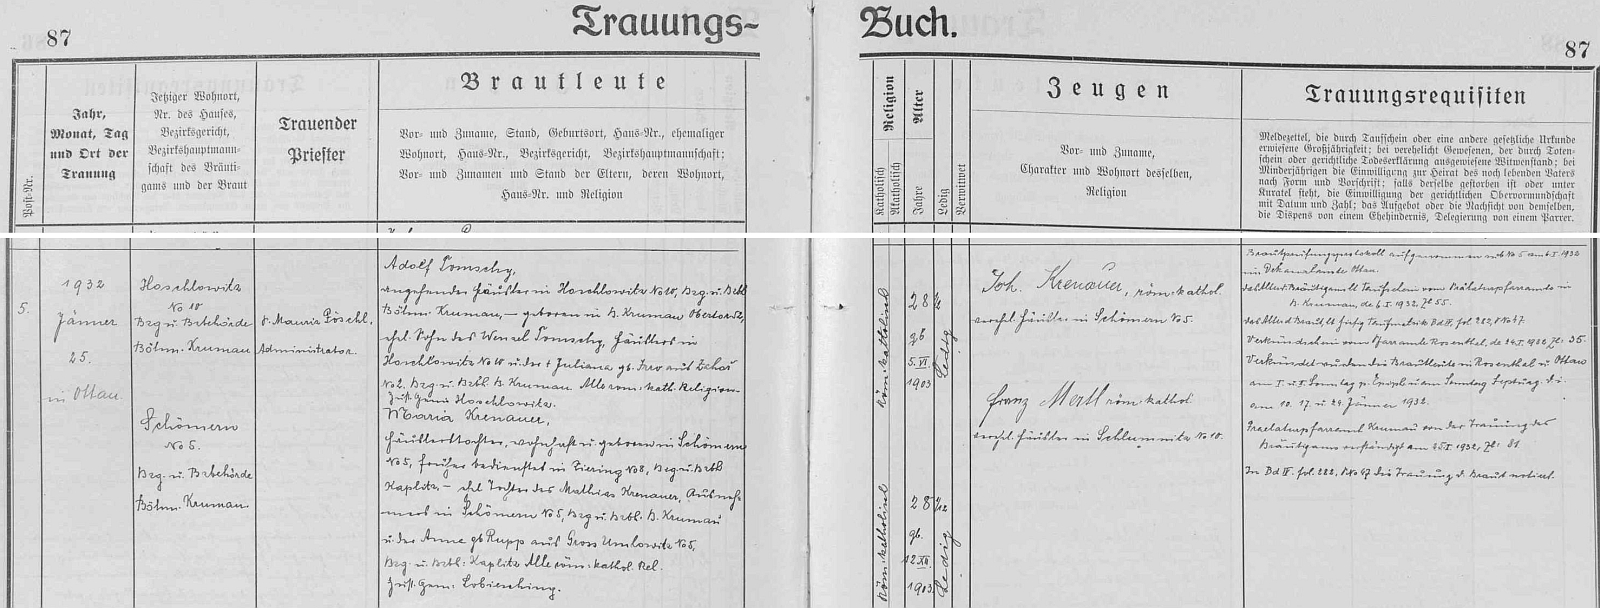 87
Trauungs-
Buch.
87
Post-Nr.
Jahr,
Monat, Tag
und Ort der
Trauung
Jetziger Wohnort,
Nr. des Hauses,
Bezirksgericht,
Bezirkshauptmann-
schaft des Bräuti-
gams und der Braut
Trauender
Priester
Brautleute
Vor- und Zuname, Stand, Geburtsort, Haus-Nr., ehemaliger
Wohnort, Haus-Nr., Bezirksgericht, Bezirkshauptmannschaft;
Vor- und Zunamen und Stand der Eltern, deren Wohnort,
Haus-Nr. und Religion
Religion
Katholisch
Akatholisch
Alter
Jahre
Ledig
Verwitwet
Zeugen
Vor- und Zuname,
Charakter und Wohnort desselben,
Religion
Trauungsrequisiten
Meldezettel, die durch Taufschein oder eine andere gesetzliche Urkunde
erwiesene Großjährigkeit; bei verehelicht Gewesenen, der durch Toten-
schein oder gerichtliche Todeserklärung ausgewiesene Witwenstand; bei
Minderjährigen die Einwilligung zur Heirat des noch lebenden Vaters
nach Form und Vorschrift; falls derselbe gestorben ist oder unter
Kuratel steht, die Einwilligung der gerichtlichen Obervormundschaft
mit Datum und Zahl; das Aufgebot oder die Nachsicht von demselben,
die Dispens von einem Ehehindernis, Delegierung von einem Pfarrer.
5.
1932
Jänner
25.
in Ottau
Hoschlowitz
No 10
Bzg u. Bzbehörde
Böhm. Krumau
Schömern
No 5.
Bzg. u. Bzbehörde
Böhm. Krumau
P. Mauriz Pöschl,
Administrator.
Adolf Tomschy,
angehender Häusler in Hoschlowitz No 10, Bzg. u. Bzbh
Böhm. Krumau, – geboren in B. Krumau
ehel. Sohn des Wenzel Tomschy, Häuslers in
Hoschlowitz No 10 u. der † Juliana gb. aus
No 2, Bzg u. Bzbh B. Krumau. Alle röm. kath. Religion
Zust. Gem. Hoschlowitz.
Maria Krenauer,
Häuslerstochter, wohnhaft u. geboren in Schömern
No 5, früher bedienstet in Zirring No 8, Bzg. u. Bzbh
Kaplitz – ehel Tochter des Mathias Krenauer, Ausneh-
mers in Schömern No 5, Bzg u. Bzbh. B. Krumau
u. der Anna gb Rupp aus Gross Umlowitz No 5,
Bzg. u. Bzbh: Kaplitz Alle röm. kathol. Rel.
Zust. Gem: Lobiesching.
römkatholisch
28
gb
5. VI
1903
Ledig
römkatholisch
28
gb.
12. XII.
1903
Ledig
Joh. Krenauer, röm. kathol.
verehl. Häusler in Schömern No 5.
Franz Mertl röm. kathol
verehl. Häusler in Schlumnitz No 10.
Brautprüfungsprotokoll aufgenommen sub No 5 am 6. I. 1932
im Dekanalamte Ottau.
das Alter d. Bräutigams lt Taufschein vom Prälaturpfarramte in
B. Krumau, de 6. I. 1932, Zl 55.
das Alter d. Braut lt hies. Taufmatrik Bd IV, fol. 282, No 47.
Verkündschein vom Pfarramte Rosenthal, de 24. I. 1932, Zl: 35.
Verkündet wurden die Brautleute in Rosenthal u Ottau
am I. u. II. Sonntag p. Epiph u am Sonntag Septuag. d. i.
am 10. 17. u 24. Jänner 1932.
Praelaturpfarramt Krumau von der Trauung des
Bräutigams verständigt am 25. I. 1932, Zl: 81.
In Bd IV. fol. 282, No 47 die Trauung d. Braut notiert.